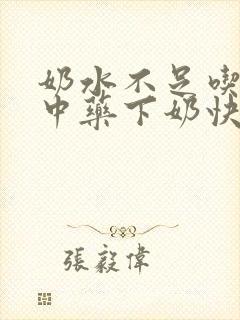 奶水不足喫
中藥下奶快
張毅偉